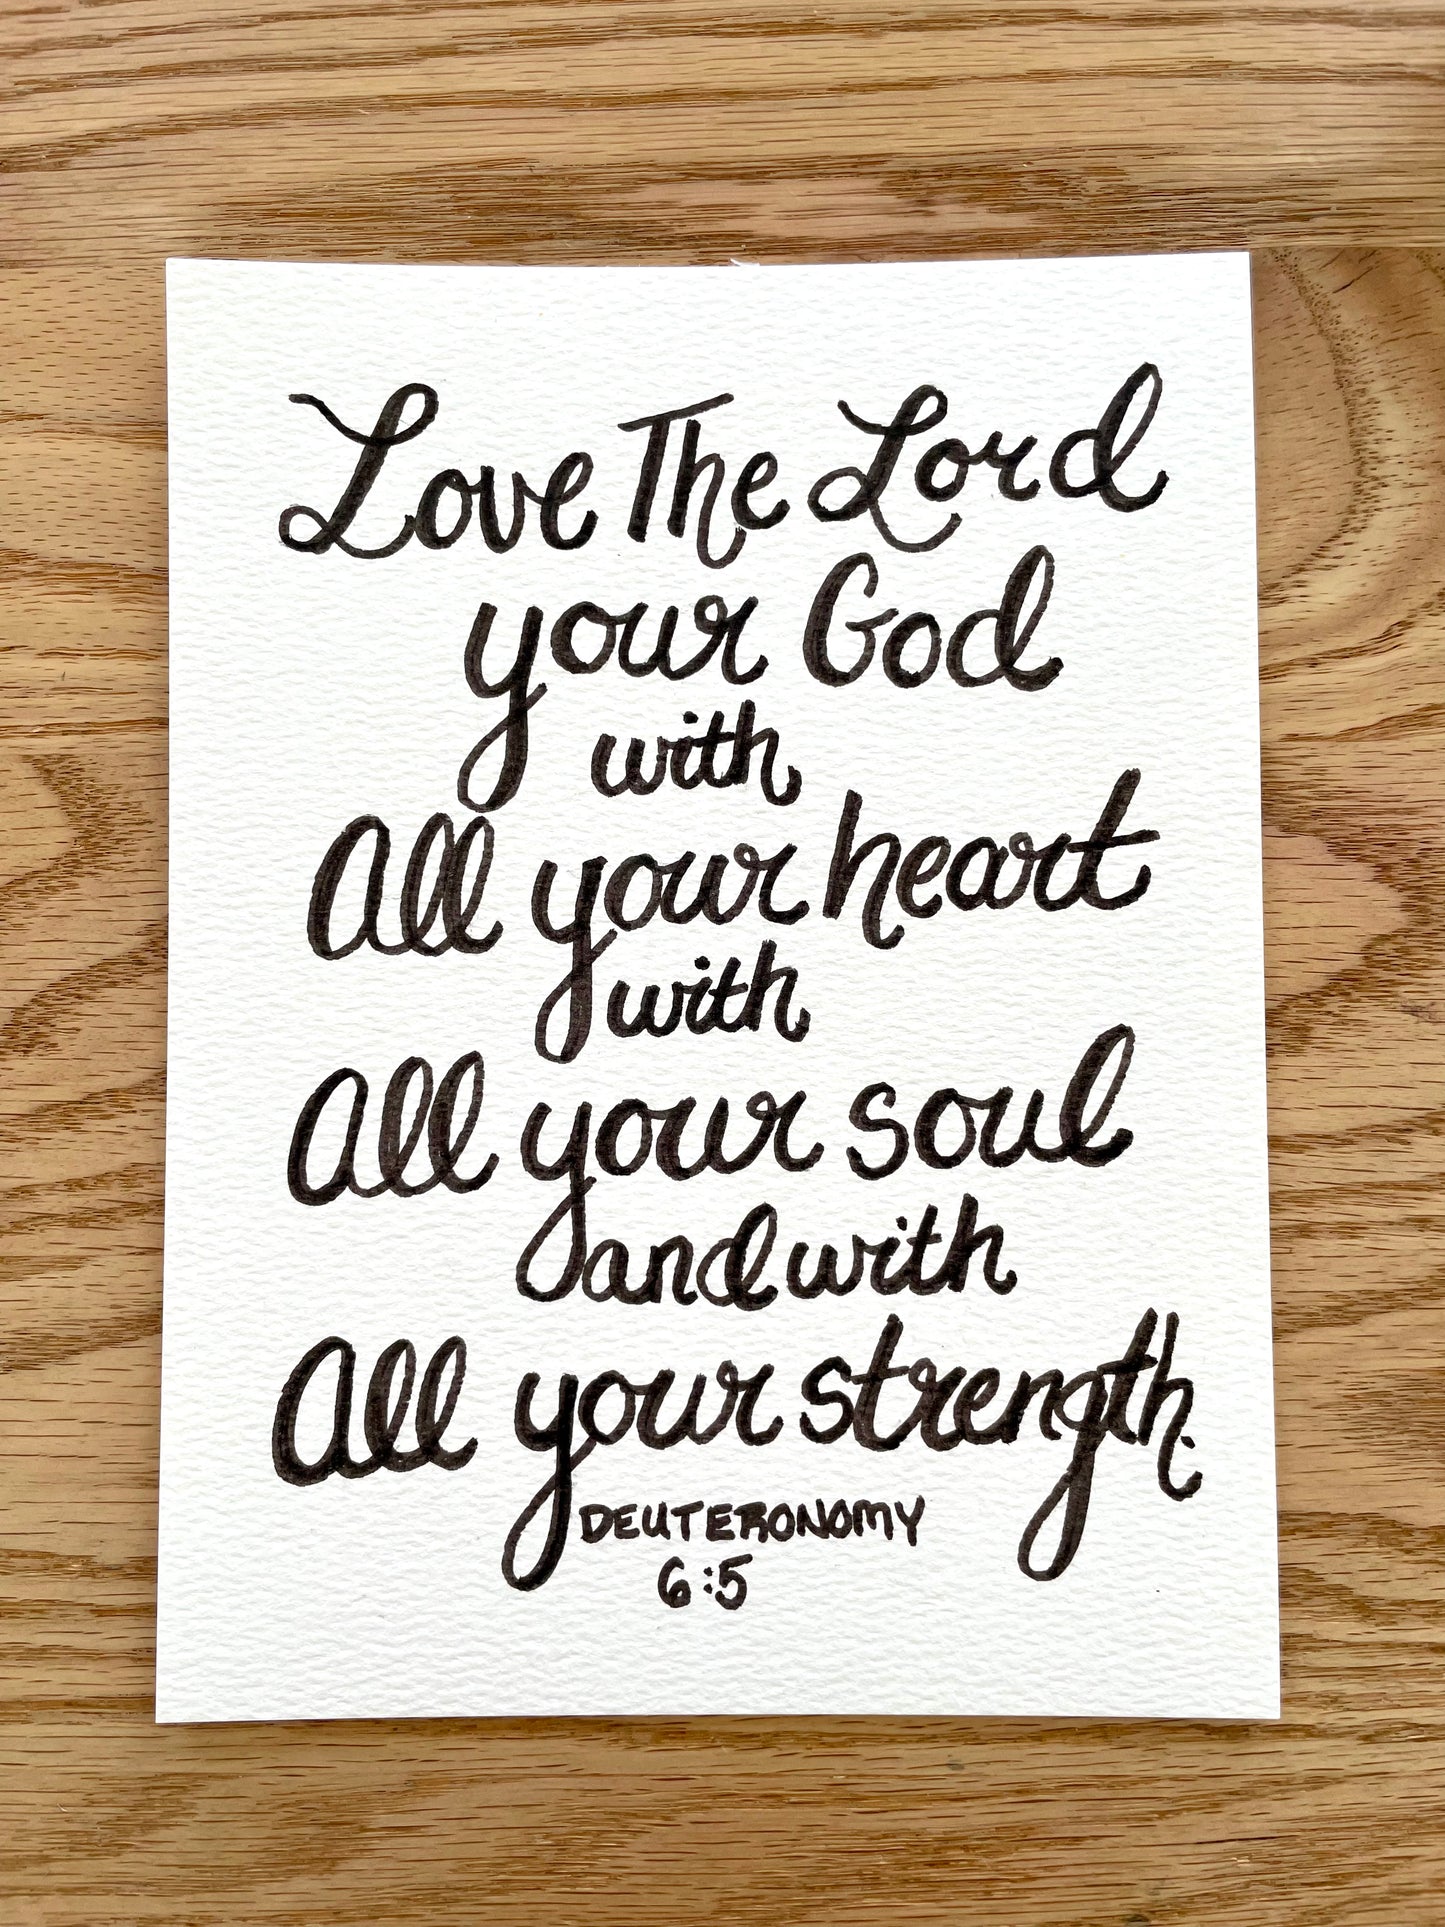 Love The Lord
your God
with
All your heart
with
All your soul
and with
All your strength.
DEUTERONOMY
6:5